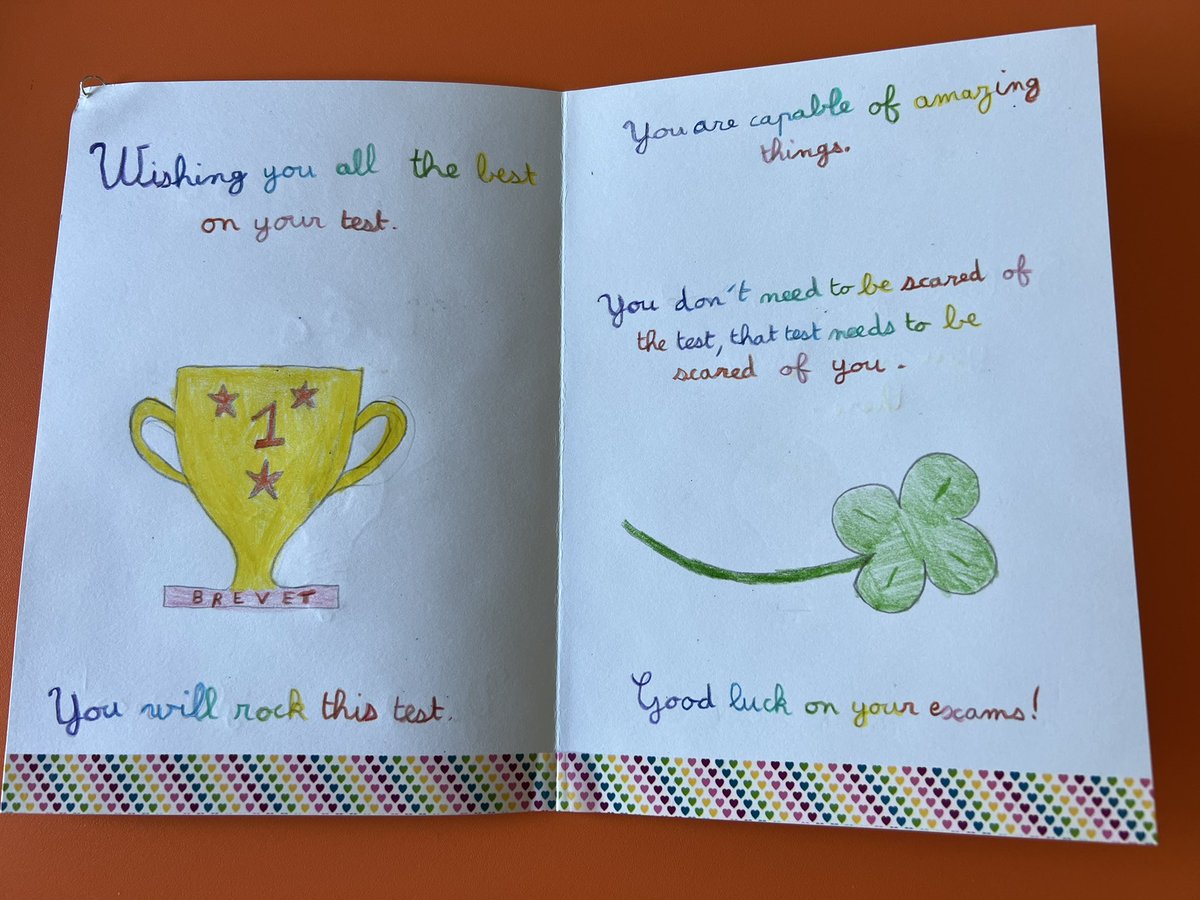 Wishing you all the best
on your test.
1
BREVET
You will rock this test.
You are capable of amazing
things.
You don't need to be scared of
the test, that test needs to be
scared of you.
Good luck on your exams!